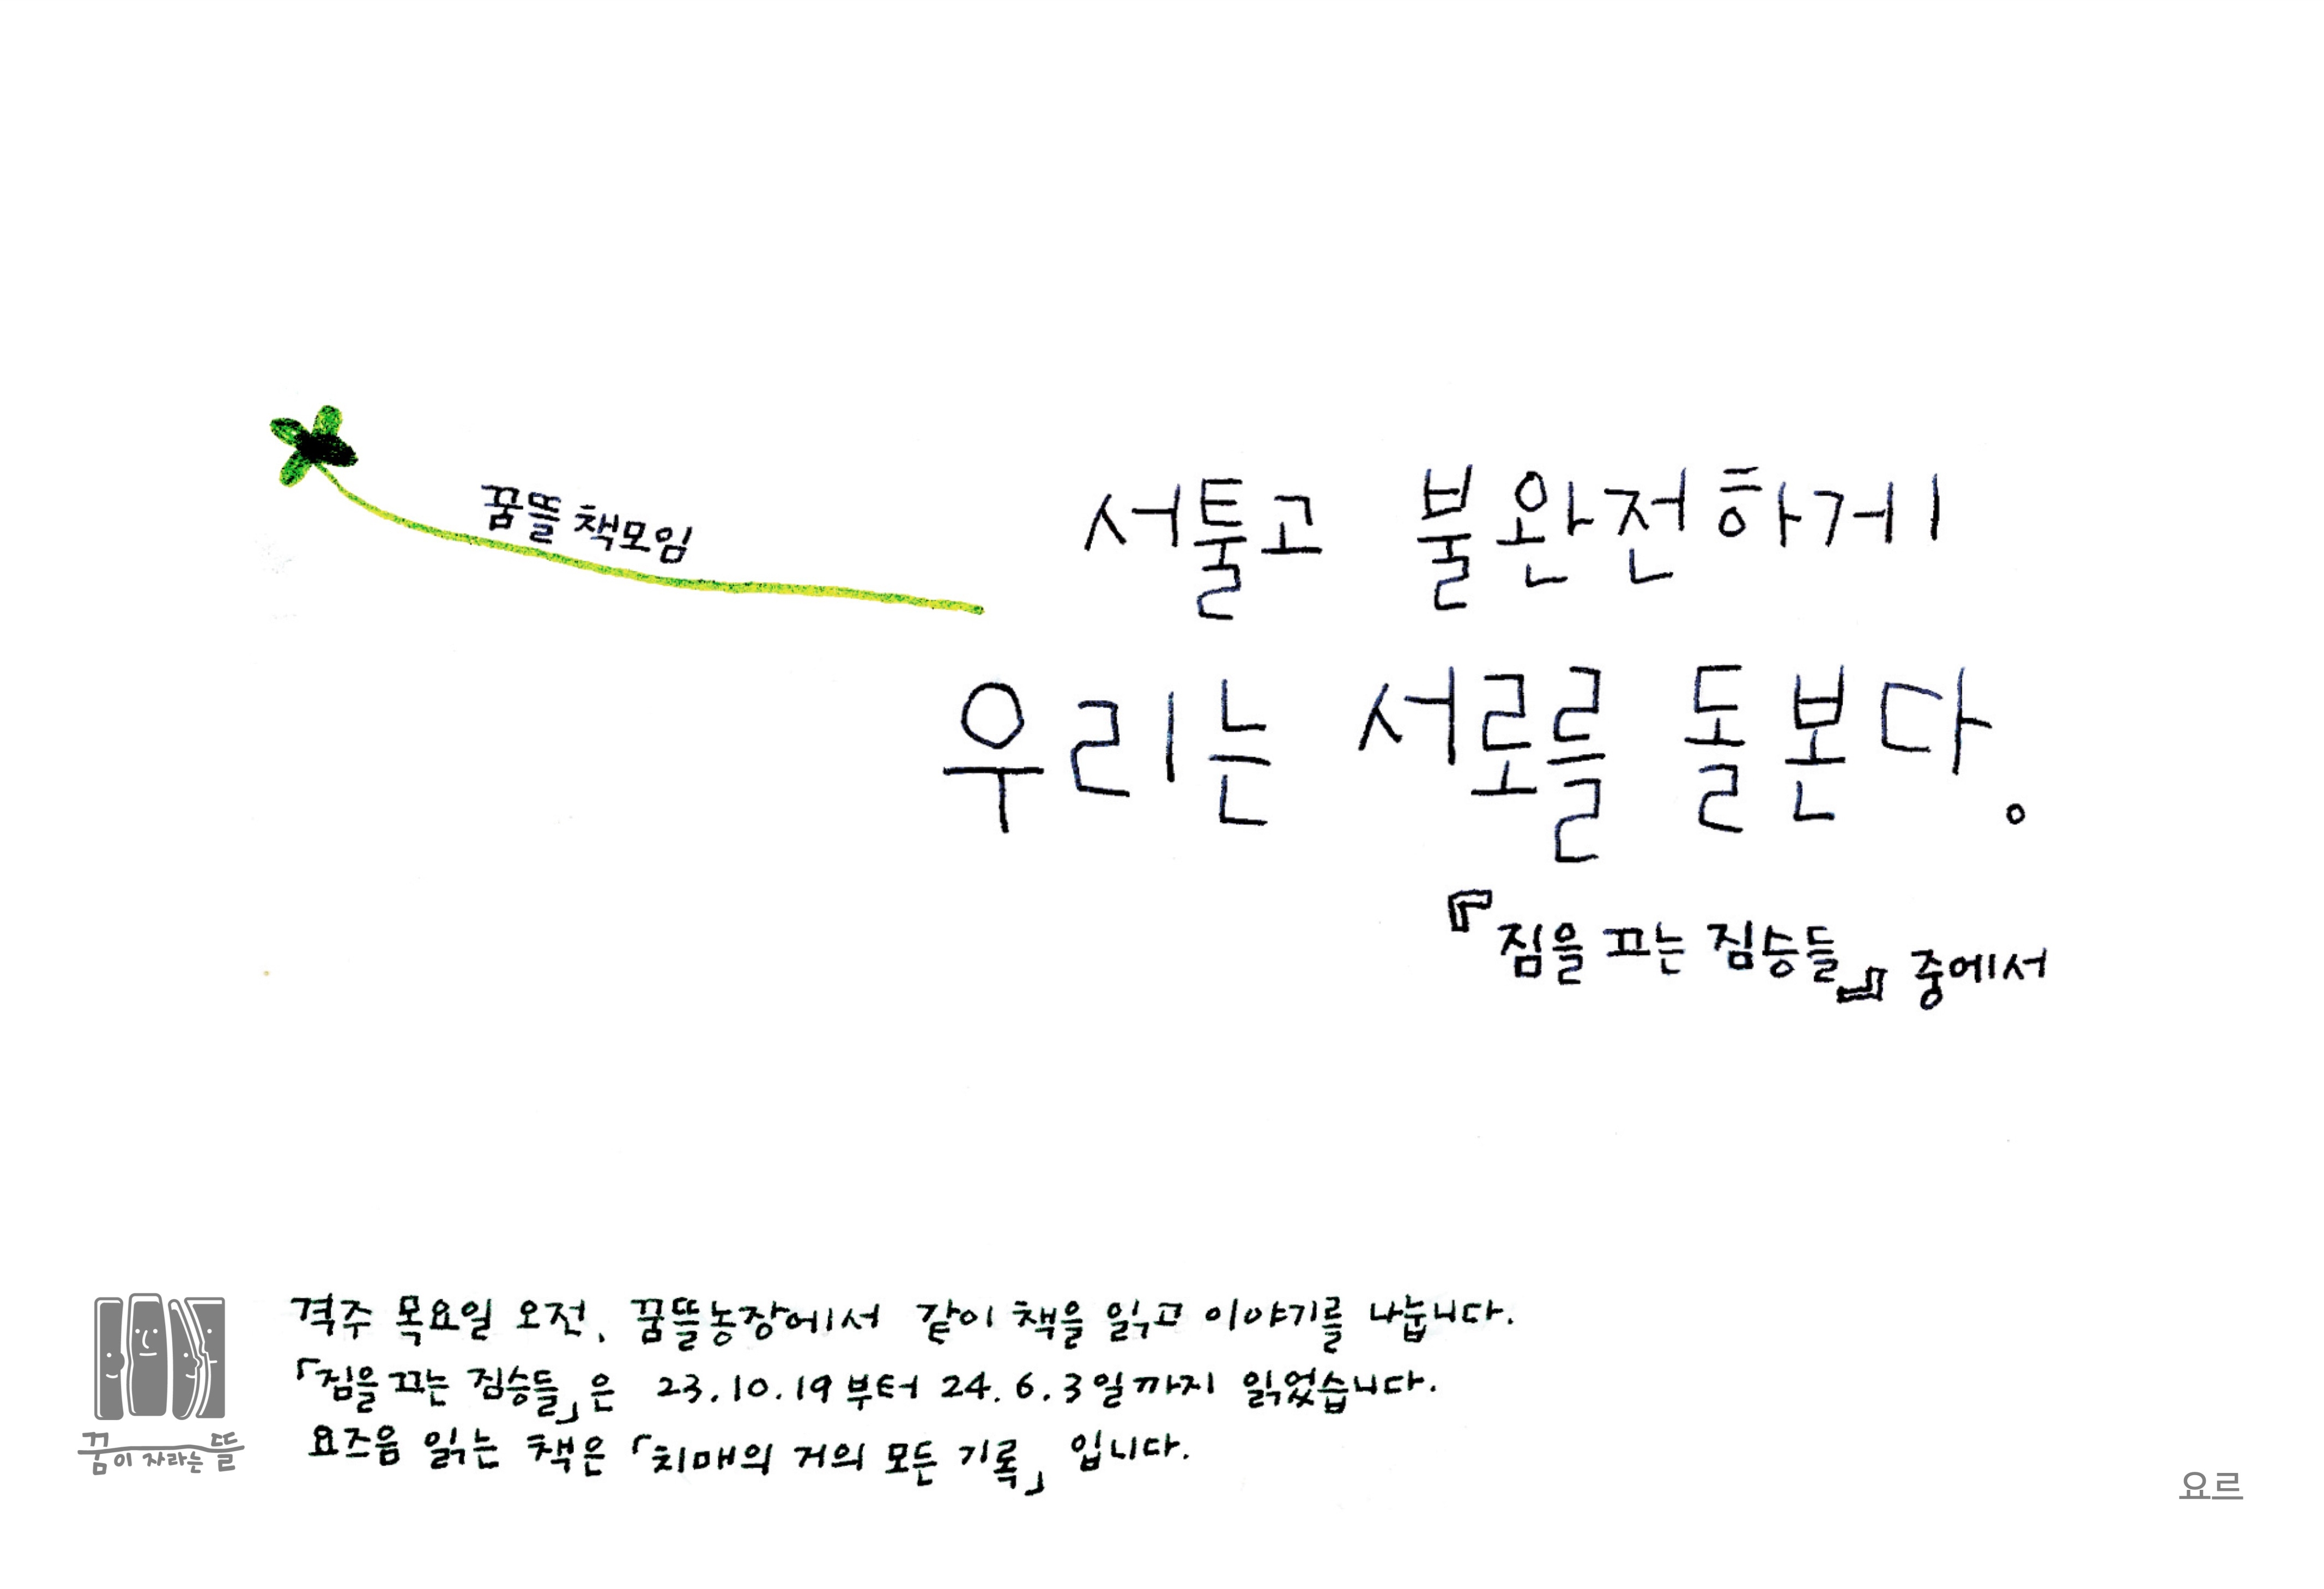 꿈뜰 책모임
서툴고 불완전하게
우리는 서로를 돌본다.
『짐을 끄는 짐승들』 중에서
격주 목요일 오전, 꿈뜰농장에서 같이 책을 읽고 이야기를 나눕니다.
「짐을 끄는 짐승들」은 23.10.19부터 24.6.3일까지 읽었습니다.
요즈음 읽는 책은 「치매의 거의 모든 기록」 입니다.
꿈이 자라는 뜰
요르